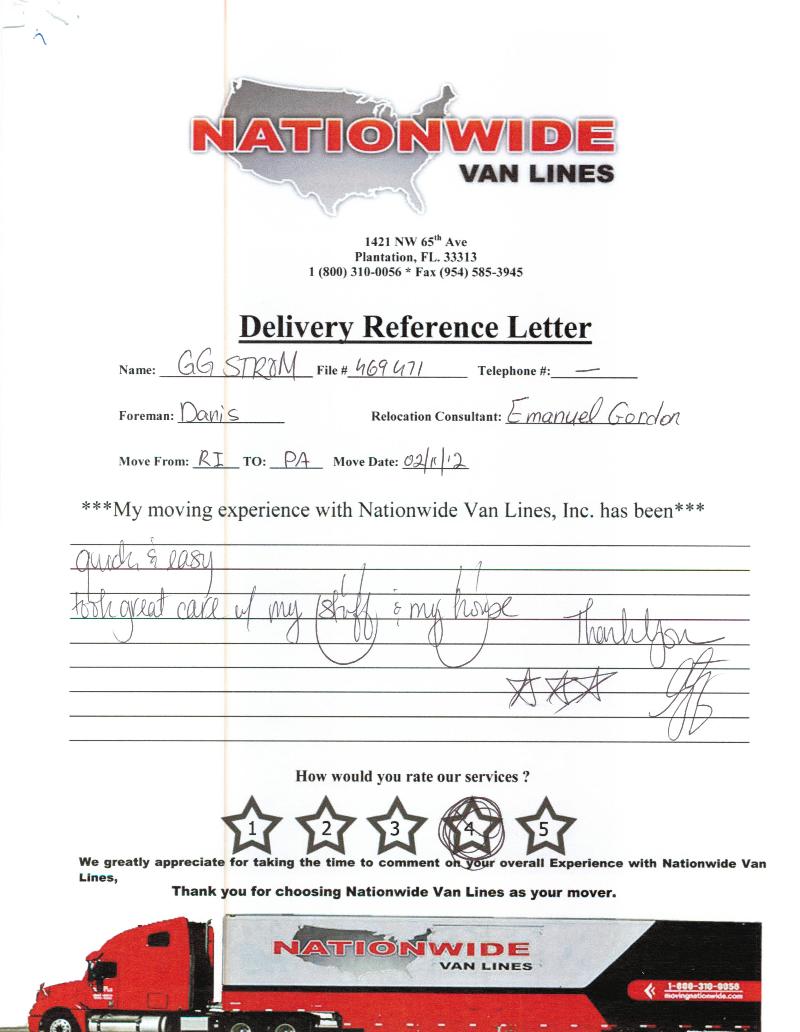 NATIONWIDE
VAN LINES
1421 NW 65th Ave
Plantation, FL. 33313
1 (800) 310-0056 * Fax (954) 585-3945
Delivery Reference Letter
Name: GG STROM File # 469471 Telephone #: —
Foreman: Danis Relocation Consultant: Emanuel Gordon
Move From: RI TO: PA Move Date: 02/11/12
***My moving experience with Nationwide Van Lines, Inc. has been***
quick & easy
took great care w/ my stuff & my house
Thank You
How would you rate our services ?
1 2 3 4 5
We greatly appreciate for taking the time to comment on your overall Experience with Nationwide Van
Lines,
Thank you for choosing Nationwide Van Lines as your mover.
NATIONWIDE
VAN LINES
1-800-310-0056
movingnationwide.com